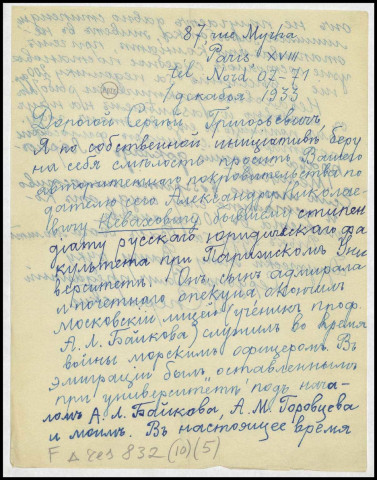 87 rue Myrha
Paris XVIII
tel. Nord 02-71
1 декабря 1933
Дорогой Сергѣй Григорьевичъ,
Я по собственной инициативѣ беру
на себя смѣлость просить Вашего
авторитетнаго покровительства по
дателю сего Александру Николае-
вичу Неваховичу бывшему стипен
діату русскаго юридическаго фа
культета при Парижскомъ Уни
верситетѣ. Онъ сынъ адмирала
и почетнаго опекуна, окончилъ
Московскій лицей (ученикъ проф.
А. Л. Байкова) служилъ во время
войны морскимъ офицеромъ. Въ
эмиграціи былъ оставленнымъ
при университетѣ подъ нача-
ломъ А. Л. Байкова, А. М. Горовцева
и моимъ. Въ настоящее время
F Δ rés 832 (10)(5)